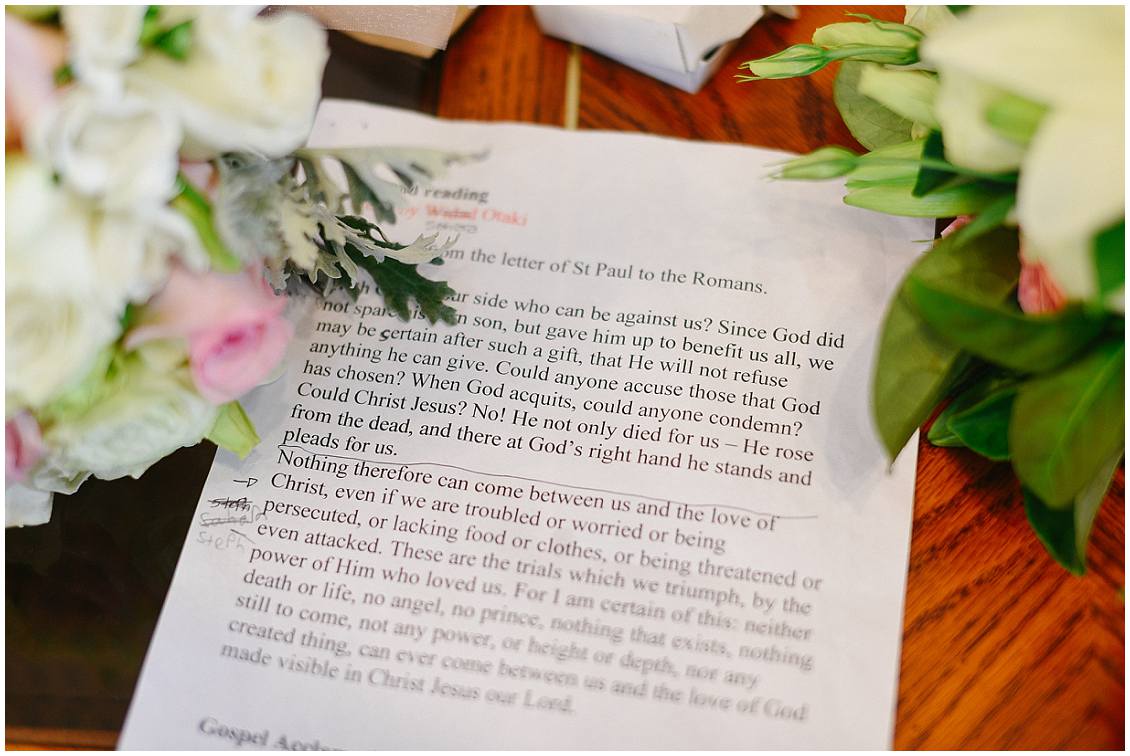 reading
by Widad Otaki
om the letter of St Paul to the Romans.
ur side who can be against us? Since God did
not spare is n son, but gave him up to benefit us all, we
may be certain after such a gift, that He will not refuse
anything he can give. Could anyone accuse those that God
has chosen? When God acquits, could anyone condemn?
Could Christ Jesus? No! He not only died for us – He rose
from the dead, and there at God's right hand he stands and
pleads for us.
Nothing therefore can come between us and the love of
Christ, even if we are troubled or worried or being
persecuted, or lacking food or clothes, or being threatened or
even attacked. These are the trials which we triumph, by the
power of Him who loved us. For I am certain of this: neither
death or life, no angel, no prince, nothing that exists, nothing
still to come, not any power, or height or depth, nor any
created thing, can ever come between us and the love of God
made visible in Christ Jesus our Lord.
steph
steph
Gospel